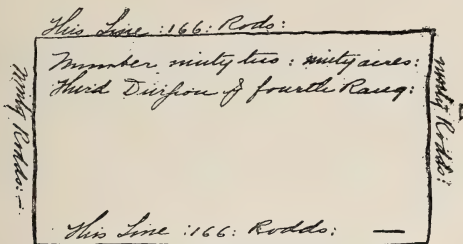 This Line :166: Rods:
Number ninty two : ninty acres:
Third Division of fourth Rang:
Ninty Rodds: -
ninty Rodds:
This Line :166: Rodds: —